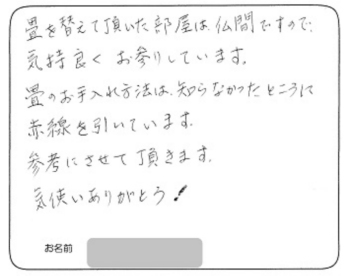 畳を替えて頂いた部屋は、仏間ですので、
気持良くお参りしています。
畳のお手入れ方法は、知らなかったところに
赤線を引いています。
参考にさせて頂きます。
気使いありがとう!
お名前